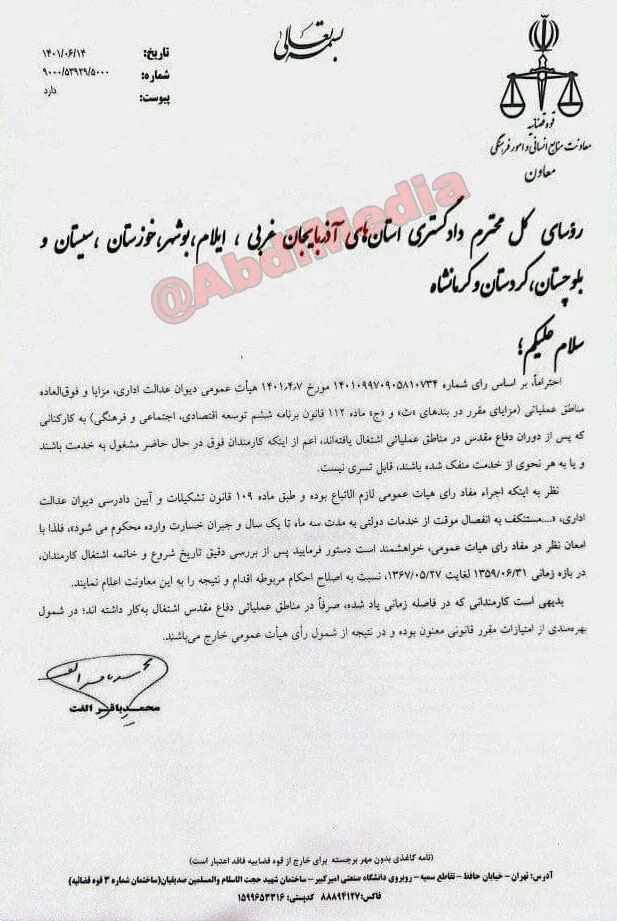 بسمه تعالی
تاریخ: ۱۴۰۱/۰۶/۱۴
شماره: ۹۰۰۰/۵۳۹۳۹/۵۰۰۰
پیوست: دارد
قوه قضائیه
معاونت منابع انسانی و امور فرهنگی
معاون
@AbdiMedia
رؤسای کل محترم دادگستری استان‌های آذربایجان غربی ، ایلام،بوشهر،خوزستان ،سیستان و
بلوچستان،کردستان و کرمانشاه
سلام علیکم؛
احتراماً، بر اساس رای شماره ۱۴۰۱۰۹۹۷۰۹۰۵۸۱۰۷۳۴ مورخ ۱۴۰۱٫۴٫۷ هیأت عمومی دیوان عدالت اداری، مزایا و فوق‌العاده
مناطق عملیاتی (مزایای مقرر در بندهای «ث» و «ج» ماده ۱۱۲ قانون برنامه ششم توسعه اقتصادی، اجتماعی و فرهنگی) به کارکنانی
که پس از دوران دفاع مقدس در مناطق عملیاتی اشتغال یافته‌اند، اعم از اینکه کارمندان فوق در حال حاضر مشغول به خدمت باشند
و یا به هر نحوی از خدمت منفک شده باشند، قابل تسری نیست.
نظر به اینکه اجراء مفاد رای هیات عمومی لازم الاتباع بوده و طبق ماده ۱۰۹ قانون تشکیلات و آیین دادرسی دیوان عدالت
اداری، «...مستنکف به انفصال موقت از خدمات دولتی به مدت سه ماه تا یک سال و جبران خسارت وارده محکوم می شود»، فلذا با
امعان نظر در مفاد رای هیات عمومی، خواهشمند است دستور فرمایید پس از بررسی دقیق تاریخ شروع و خاتمه اشتغال کارمندان،
در بازه زمانی ۱۳۵۹/۰۶/۳۱ لغایت ۱۳۶۷/۰۵/۲۷، نسبت به اصلاح احکام مربوطه اقدام و نتیجه را به این معاونت اعلام نمایند.
بدیهی است کارمندانی که در فاصله زمانی یاد شده، صرفاً در مناطق عملیاتی دفاع مقدس اشتغال به‌کار داشته اند؛ در شمول
بهره‌مندی از امتیازات مقرر قانونی معنون بوده و در نتیجه از شمول رأی هیأت عمومی خارج می‌باشند.
محمدباقر الفت
(نامه کاغذی بدون مهر برجسته برای خارج از قوه قضاییه فاقد اعتبار است)
آدرس: تهران - خیابان حافظ - تقاطع سمیه - روبروی دانشگاه صنعتی امیرکبیر - ساختمان شهید حجت الاسلام والمسلمین صدیقیان(ساختمان شماره ۳ قوه قضائیه)
فاکس: ۸۸۸۹۴۱۲۷ کدپستی: ۱۵۹۹۶۵۴۳۱۶